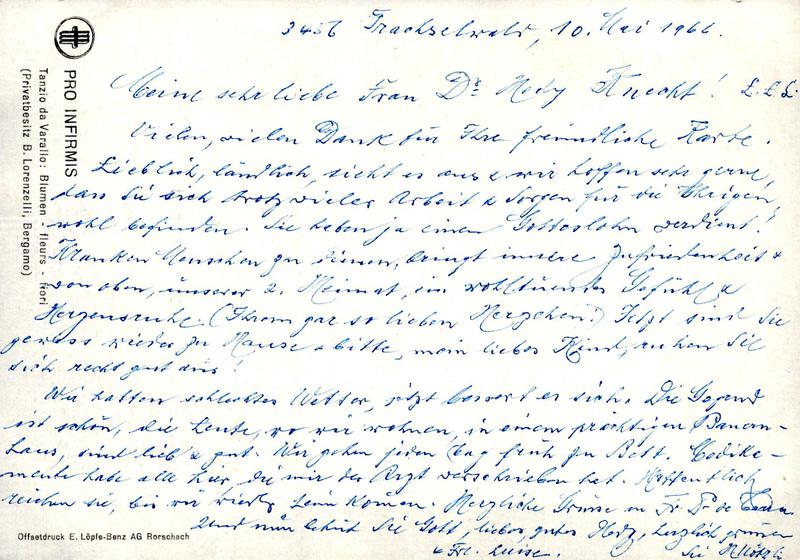 3456 Trachselwald, 10. Mai 1966.
Meine sehr liebe Frau Dr. Hedy Knecht!
Vielen, vielen Dank für Ihre freundliche Karte.
Lieblich, ländlich, sieht es aus & wir hoffen sehr gerne,
dass Sie sich trotz vieler Arbeit & Sorgen für die Ihrigen,
wohl befinden. Sie haben ja einen Gotteslohn verdient!
Kranken Menschen zu dienen, bringt innere Zufriedenheit &
von oben, unserer 2. Heimat, ein wohltuendes Gefühl &
Herzensruhe. (Ihrem gar so lieben Herzchen!) Jetzt sind Sie
gewiss wieder zu Hause & bitte, mein liebes Kind, ruhen Sie
sich recht gut aus!
Wir hatten schlechtes Wetter, jetzt bessert es sich. Die Gegend
ist schön, die Leute, wo wir wohnen, in einem prächtigen Bauern-
haus, sind lieb & gut. Wir gehen jeden Tag früh zu Bett. Medika-
mente habe alle hier, die mir der Arzt verschrieben hat. Hoffentlich
reichen sie, bis wir wieder heim kommen. Herzliche Grüsse an Fr. Dr. de
Und nun behüt Sie Gott, liebes, gutes Hedy, herzlich grüssen
Sie
& Frl. Luise.
PRO INFIRMIS
Tanzio da Varallo: Blumen - fleurs - fiori
(Privatbesitz B. Lorenzelli, Bergamo)
Offsetdruck E. Löpfe-Benz AG Rorschach